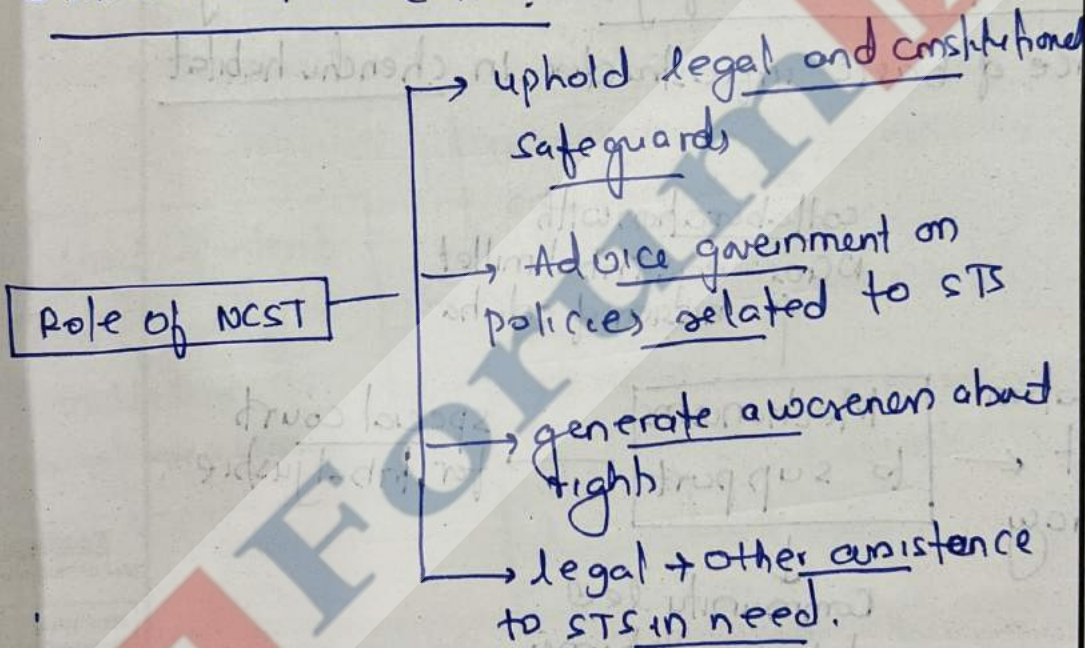 → uphold legal and constitutional
safeguards
Role of NCST
→ Advice government on
policies related to STS
→ generate awareness about
rights
→ legal + other assistence
to STS in need.
Forum